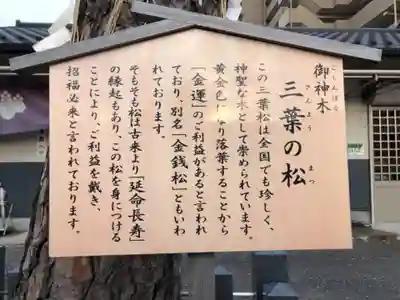 御神木
ごしんぼく
三葉の松
さんようのまつ
この三葉松は全国でも珍しく、
神聖な木として崇められています。
黄金色になり落葉することから
「金運」のご利益があると言われ
ており、別名「金銭松」ともいわ
れております。
そもそも松は古来より「延命長寿」
の縁起もあり、この松を身につける
ことにより、ご利益を戴き、
招福必来と言われております。